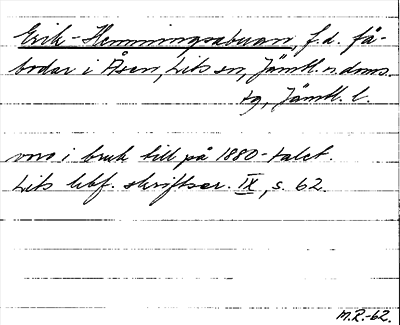 Erik-Hemmingsabuan, f.d. få-
bodar i Åsen, Lits sn, Jämtl. n. doms.
tg, Jämtl. l.
voro i bruk till på 1880-talet.
Lits hbf. skriftser. IX, s. 62.
M.R.-62.